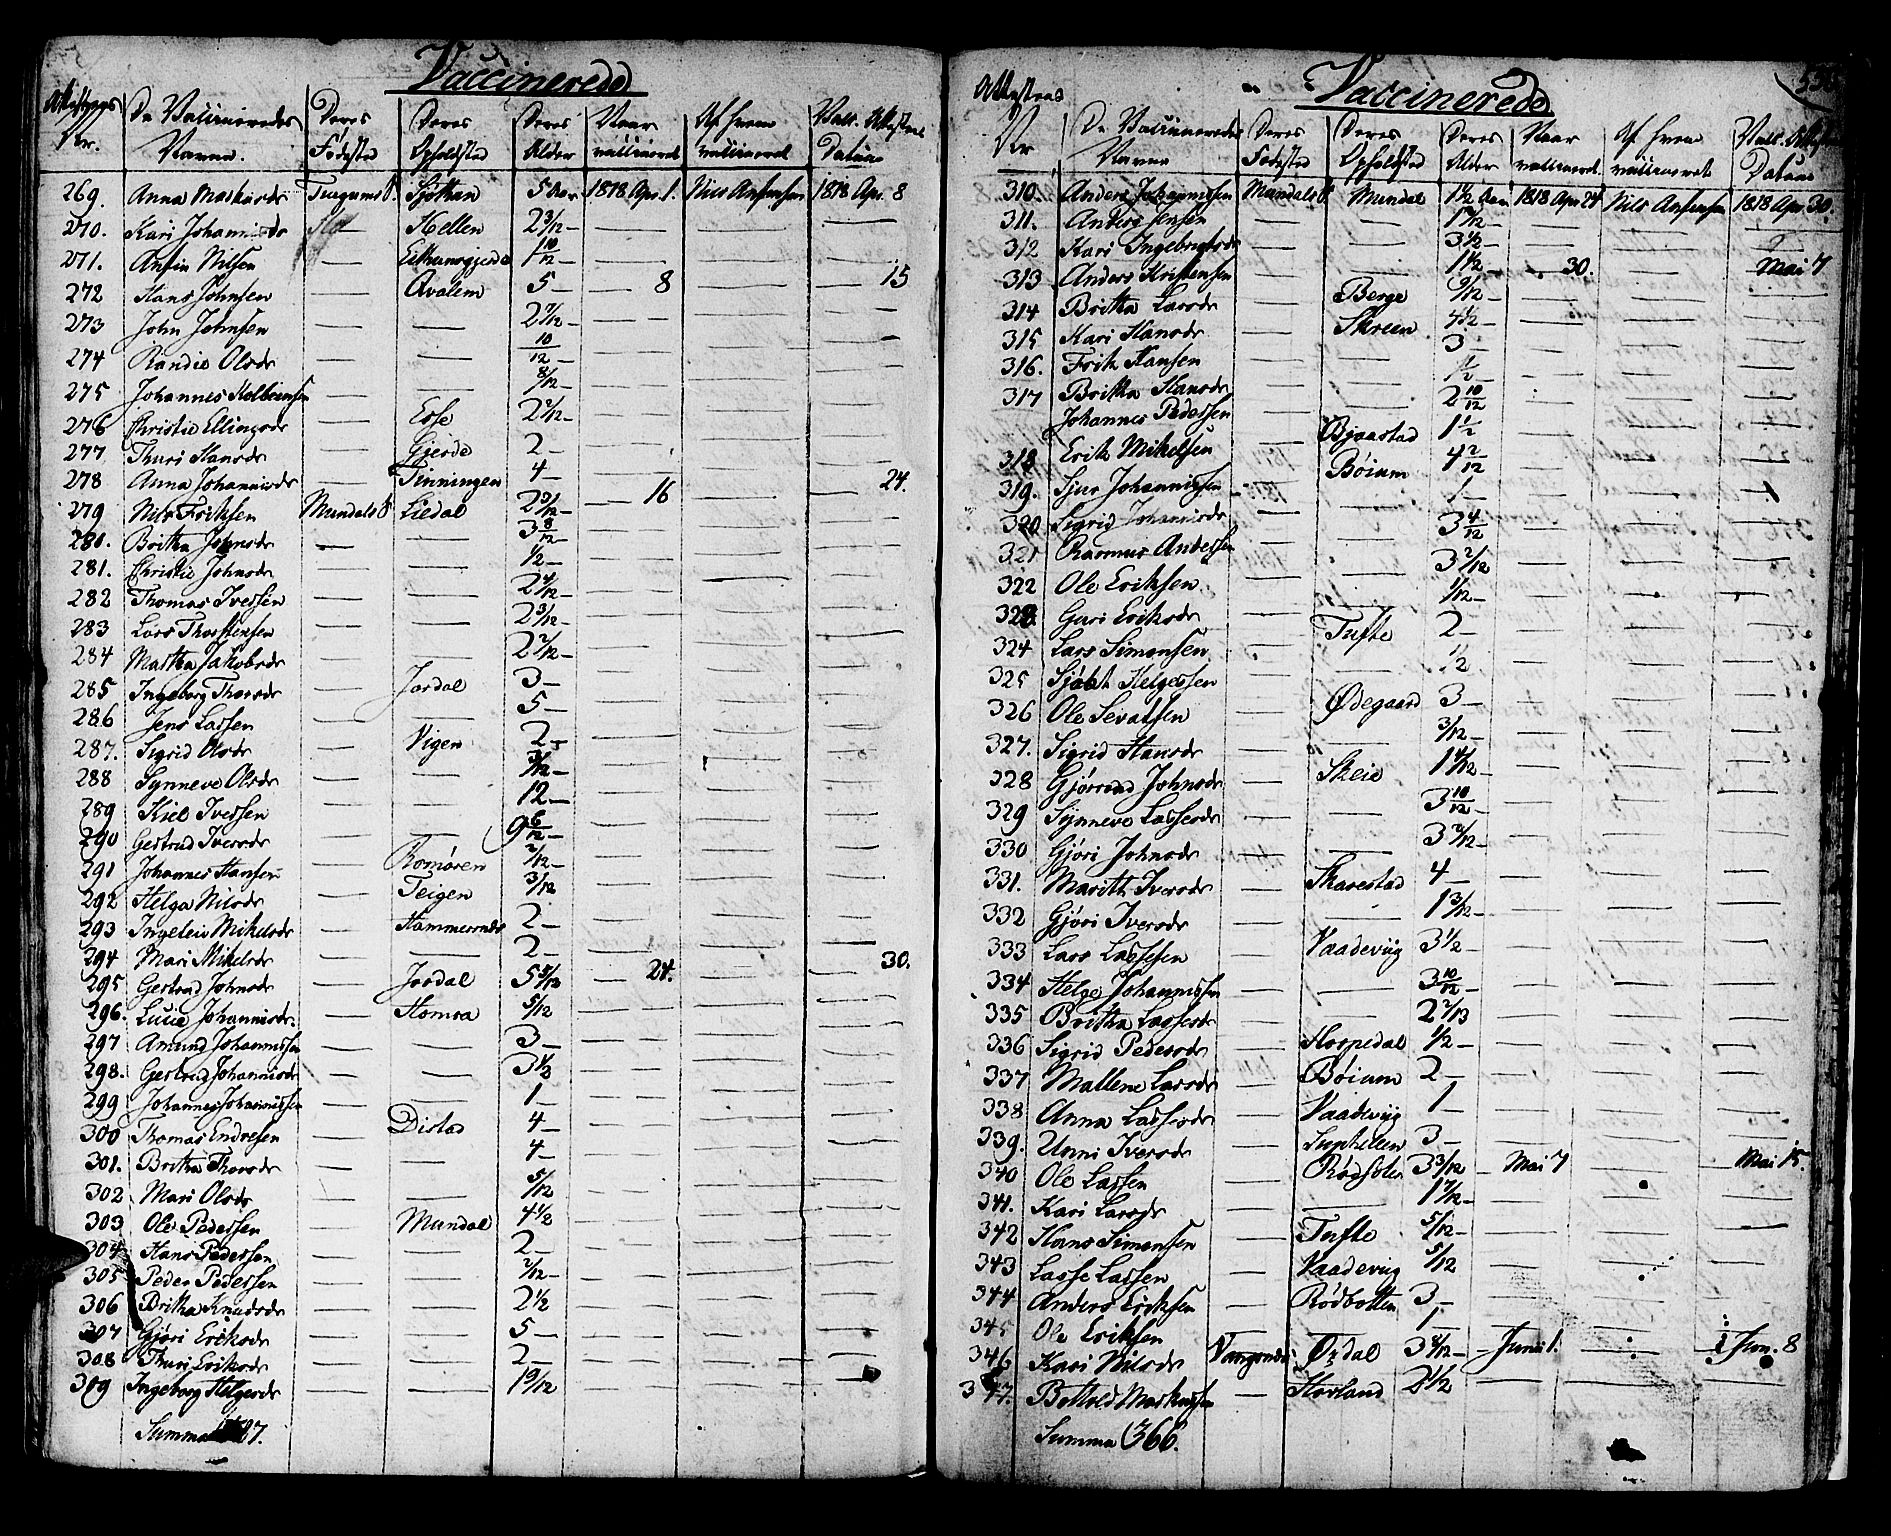 Vaccinerede
Attesternes Nr. | De Vaccineredes Navne. | Deres Fødested | Deres Opholdsted | Deres Alder | Naar vaccineret | Af hvem vaccineret | Vacc. Attestens Datum
269. Anna Markusdr Sjøthun 5 Aar 1818 Apr. 1. Nils 1818 Apr. 8
270. Kari Johannisdr — Hellen 2 3/12 — — — —
271. Ansin Nilsen — 1 10/12 — — — —
272 Hans Johnsen — Qvalem 5 — — 8 — — 15
273 John Johnsen — — 2 7/12 — — — —
274 Randie Olsdr — — 10/12 — — — —
275 Johannes Kolbeinsen — — 8/12 — — — —
276 Christie Ellingsdr — Esse 2 2/12 — — — —
277 Thuri Hansdr — Gjerde 2 — — — —
278 Anna Johannisdr — Tinningen 4 — — — —
279 Nils Eriksen Mundals S Liedal — 16 — — 24.
280. Britha Johnsdr — — 3 8/12 — — — —
281. Christie Johnsdr — — 1/2 — — — —
282 Thomas Iversen — — 2 4/12 — — — —
283 Lars Thorstensen — — 2 3/12 — — — —
284 Martha Jakobsdr — — 2 2/12 — — — —
285 Ingeborg Thorsdr — Jordal 3 — — — —
286 Jens Lassen — — 5 — — — —
287. Sigrid Olsdr — Vigen 2 — — — —
288 Synneve Olsdr — — 3/12 — — — —
289 Kiel Iversen — — 12 — — — —
290 Gertrud Iversdr — — 9 6/12 — — — —
291 Johannes Hansen — Romøren 2/12 — — — —
292 Helga Nilsdr — Teigen 3/12 — — — —
293 Ingeleiv Mikelsdr — Hammersnes 2 — — — —
294 Mari Mikelsdr — — 2 — — — —
295 Gertrud Johnsdr — Jordal 5 5/12 — 24. — — 30.
296. Lucie Johannisdr — Homra 5/12 — — — —
297 Amund Johannissen — — 3 — — — —
298. Gertrud Johannisdr — — 3 1/2 — — — —
299 Johannes Johannissen — — 1 — — — —
300 Thomas Endresen — Distad 4 — — — —
301. Britha Thorsdr — — 4 — — — —
302 Mari Olsdr — — 5/12 — — — —
303 Ole Pedersen — Mundal 4 1/2 — — — —
304 Hans Pedersen — — 2 — — — —
305 Peder Pedersen — — 2/12 — — — —
306 Britha Knudsdr — — 2 1/2 — — — —
307 Gjøri Eriksdr — — 5 — — — —
308 Thuri Eriksdr — — 2 — — — —
309 Ingeborg Helgesdr — — 1 9/12 — — — —
Summa 7.
Vaccinerede
Attestens Nr | De Vaccineredes Navne | Deres Fødested | Deres Opholdsted | Deres Alder | Naar vaccineret | Af hvem vaccineret | Vacc. Attestens Datum
310. Anders Johannissen Mundals S Mundal 1 1/2 Aar 1818 Apr 24 Nils 1818 Apr 30.
311. Anders Jensen — — — — — —
312 Kari Ingebrigtsdr — — 3 1/2 — — — —
313 Anders Kristensen — — 1 1/2 — 30. — Mai 7
314 Britha Larsdr — Berge 9/12 — — — —
315 Kari Hansdr — Skreen 4 1/2 — — — —
316. Erik Hansen — — 3 — — — —
317 Britha Hansdr — — 1/2 — — — —
Johannes Pedersen — — 2 10/12 — — — —
318 Erik Mikelsen — Bjaastad 1 1/2 — — — —
319. Sjur Johannissen — Bøium 4 2/12 — — — —
320 Sigrid Johannisdr — — 1 — — — —
321 Rasmus Andersen — — 3 4/12 — — — —
322 Ole Eriksen — — 3 2/12 — — — —
323. Guri Eriksdr — — 1/12 — — — —
324 Lars Simonsen — Tufte 2 — — — —
325 Sjøbt Helgessen — — 1/2 — — — —
326 Ole Sevatsen — Ødegaard 3 — — — —
327. Sigrid Hansdr — — 3/12 — — — —
328 Gjørond Johnsdr — Skeie — — — —
329 Synneve Lassesdr — — 3 10/12 — — — —
330 Gjøri Johnsdr — — 3 2/12 — — — —
331. Marith Iversdr — Skarestad 4 — — — —
332 Gjøri Iversdr — — 1 3/12 — — — —
333 Lars Lassesen — Vaadeviig 3 1/2 — — — —
334 Helge Johannissen — — 3 10/12 — — — —
335 Britha Lassesdr — — 2 2/13 — — — —
336 Sigrid Pedersdr — Horpedal 1/2 — — — —
337 Mallene Larsdr — Bøium 2 — — — —
338 Anna Lassesdr — Vaadeviig 1 — — — —
339. Unni Iversdr — Suphellen 3 — — — —
340 Ole Lassen — 3 3/12 — Mai 7 — — Mai 15.
341. Kari Larsdr — — 1 7/12 — — — —
342 Hans Simonsen — Tufte 5/12 — — — —
343 Lasse Lassen — Vaadeviig 5/12 — — — —
344 Anders Eriksen — Rødbotten 3 — — — —
345 Ole Eriksen — — 1 — — — —
346 Kari Nilsdr Vangsnes Ørdal 3 8/12 — Juni 1. Jun. 8
347. Bottold Markussen — Horland 2 1/2 — — — —
Summa 366.